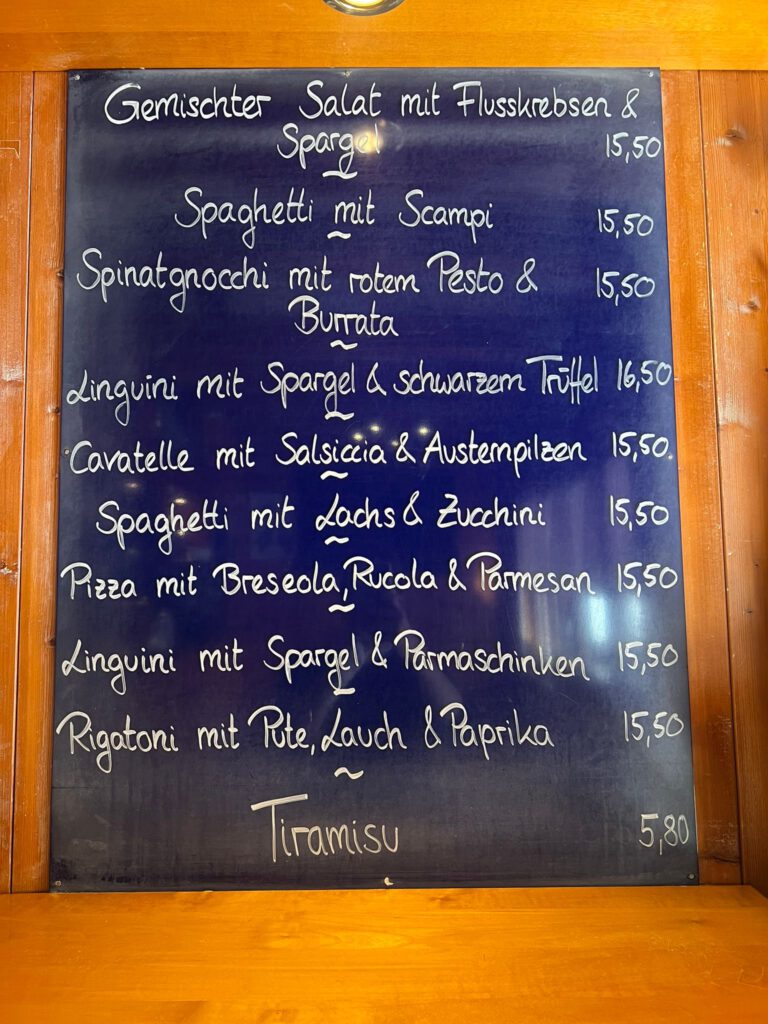 Gemischter Salat mit Flusskrebsen &
Spargel 15,50
~
Spaghetti mit Scampi 15,50
~
Spinatgnocchi mit rotem Pesto & 15,50
Burrata
~
Linguini mit Spargel & schwarzem Trüffel 16,50
~
Cavatelle mit Salsiccia & Austernpilzen 15,50
~
Spaghetti mit Lachs & Zucchini 15,50
~
Pizza mit Breseola, Rucola & Parmesan 15,50
~
Linguini mit Spargel & Parmaschinken 15,50
~
Rigatoni mit Pute, Lauch & Paprika 15,50
~
Tiramisu 5,80